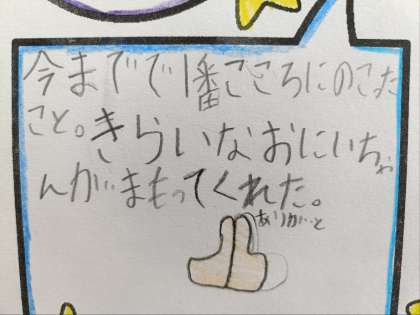 今まででで1番こころにのこた
こと。きらいなおにいちゃ
んがまもってくれた。
ありがと